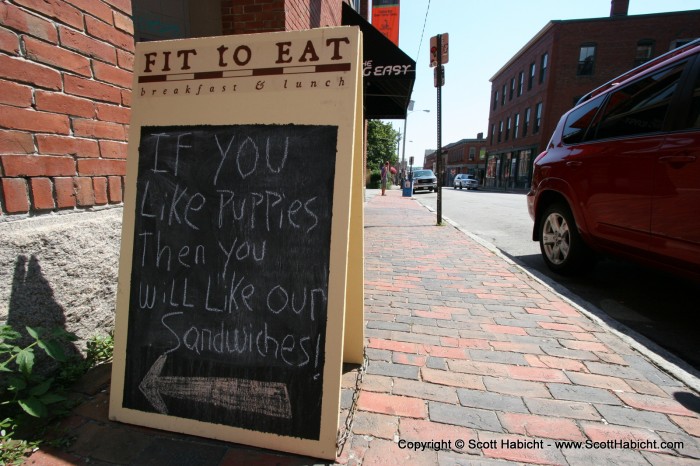 FIT to EAT
breakfast & lunch
IF YOU
Like Puppies
Then you
will Like our
Sandwiches!
THE
BIG EASY
Copyright © Scott Habicht - www.ScottHabicht.com